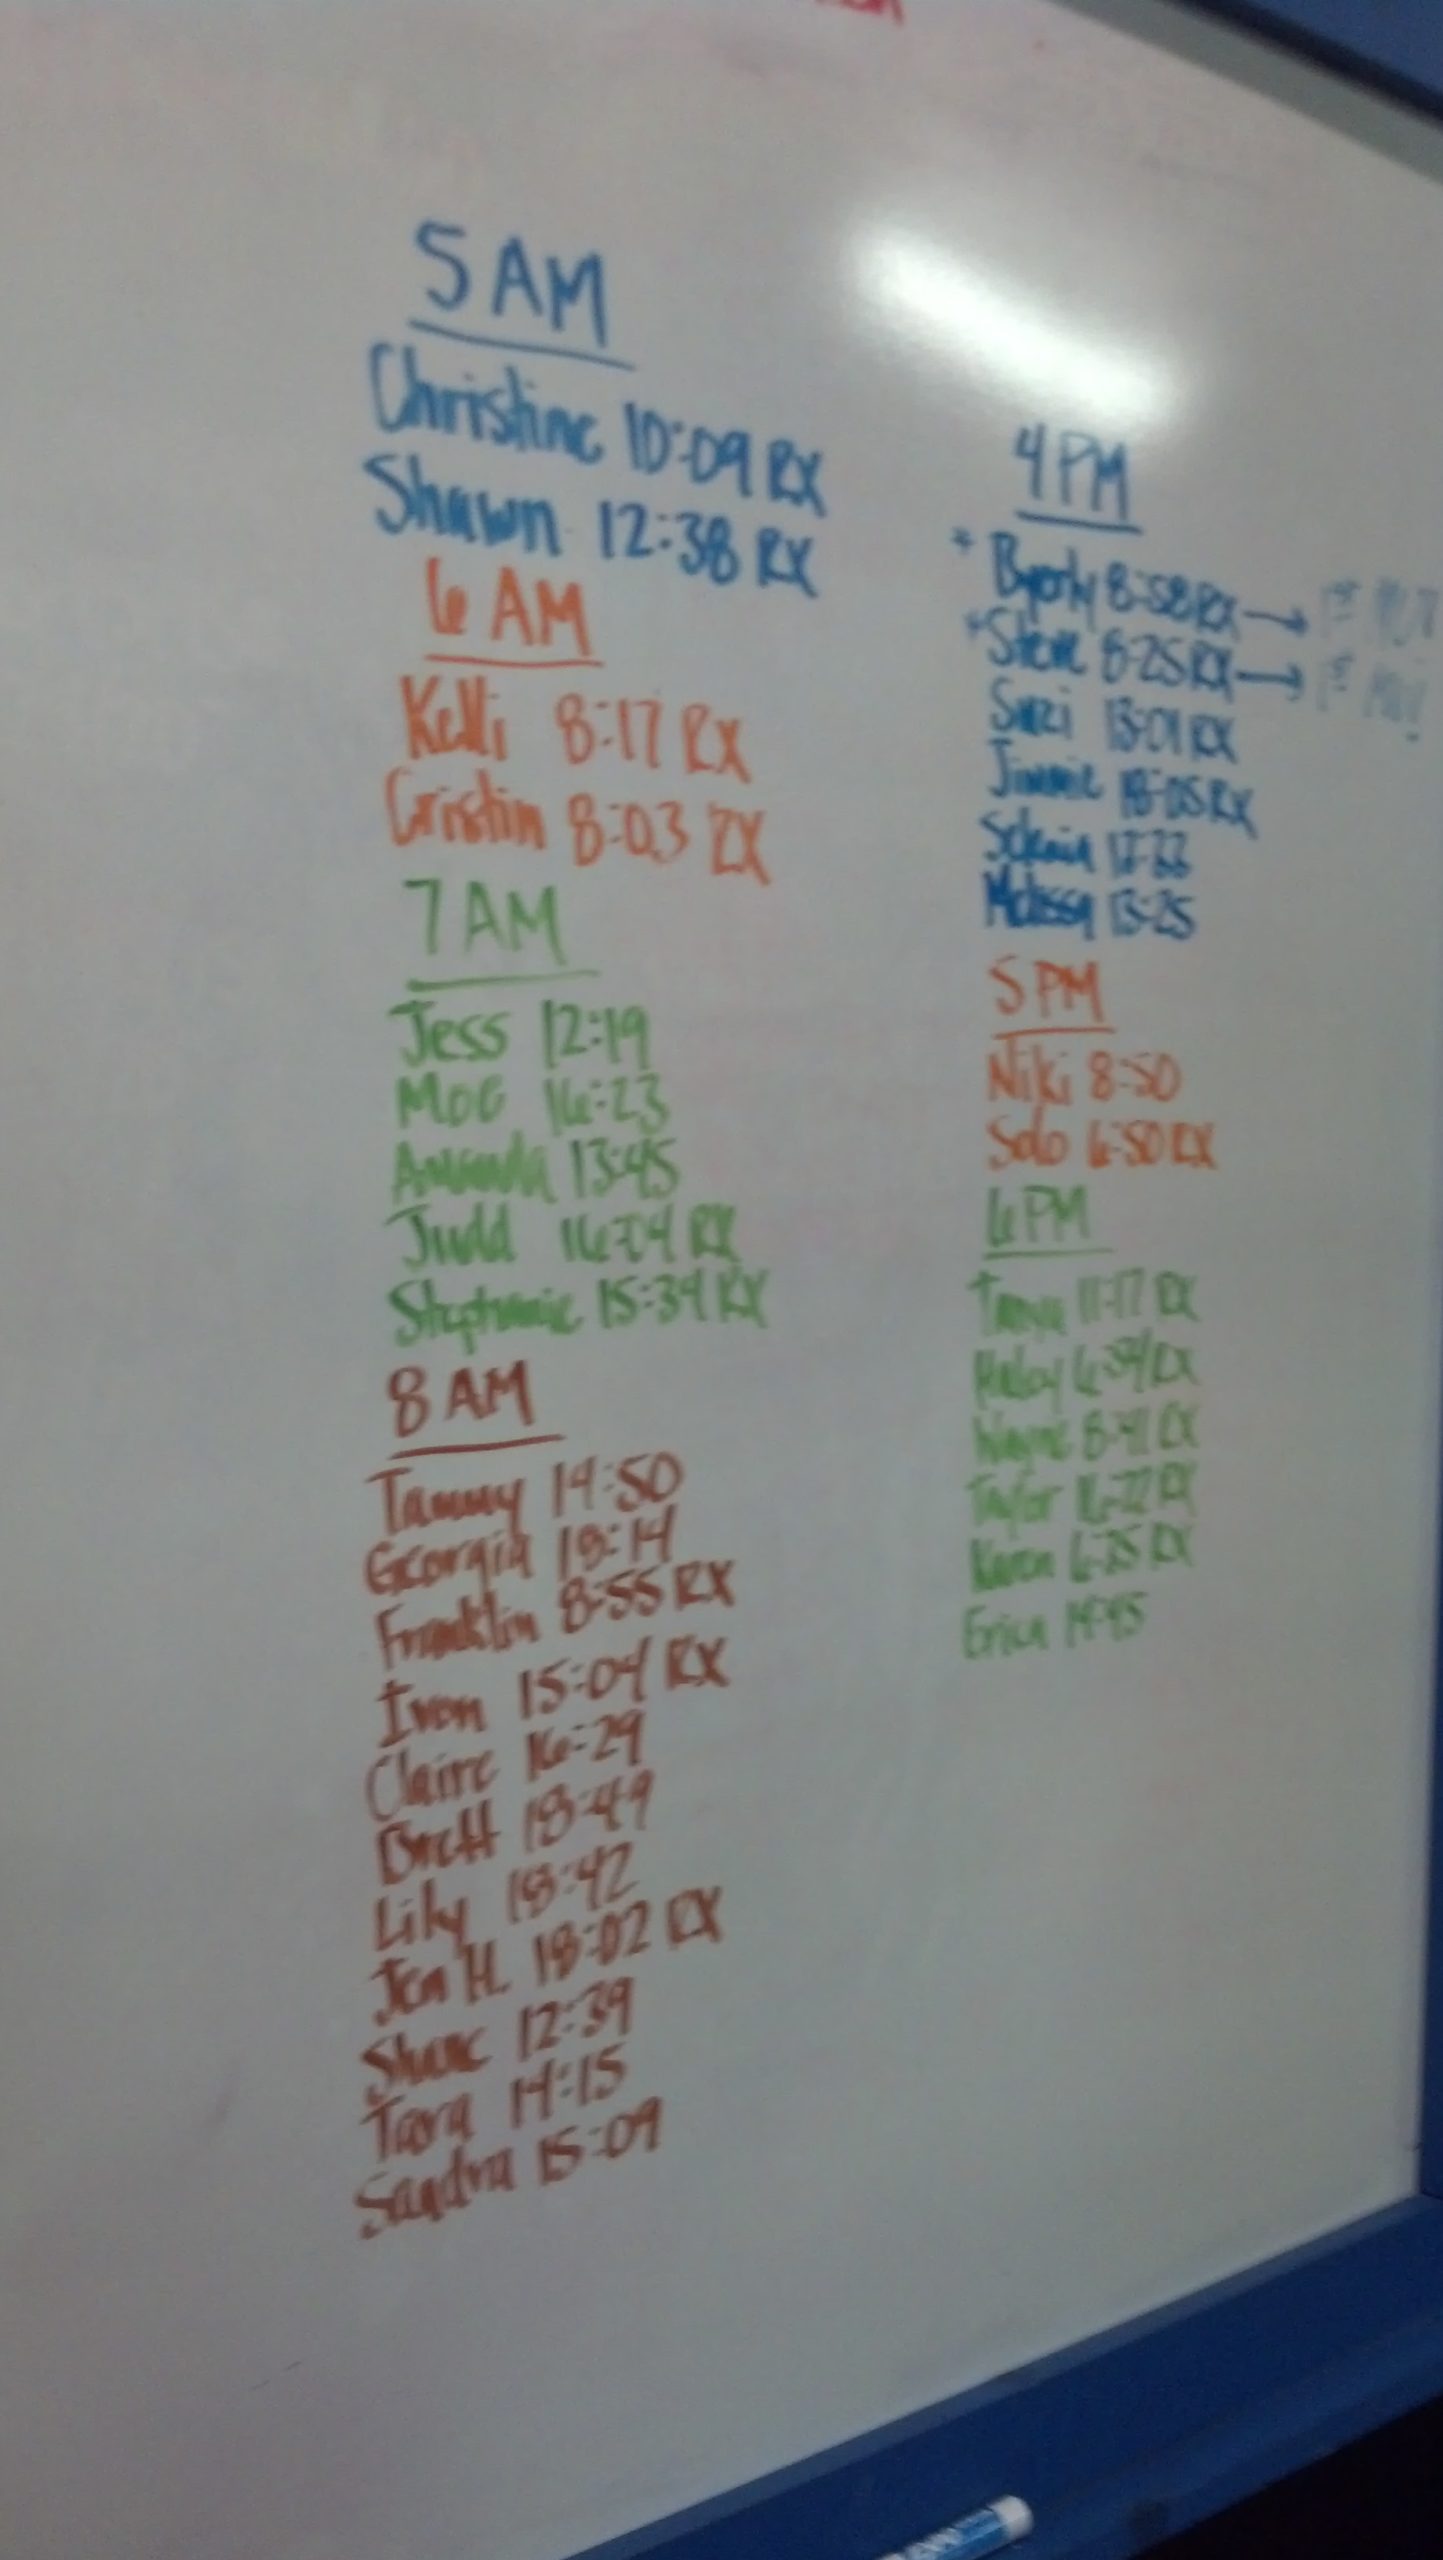 5 AM
Christine 10:09 RX
Shawn 12:38 RX
6 AM
Kelli 8:17 RX
Cristin 8:03 RX
7 AM
Jess 12:19
Moe 16:23
Amanda 13:45
Judd 16:04 RX
Stephanie 15:39 RX
8 AM
Tammy 14:50
Georgia 18:14
Franklin 8:55 RX
Ivon 15:04 RX
Claire 16:29
Brett 18:49
Lily 18:42
Jen H. 18:02 RX
Shane 12:39
Tara 14:15
Sandra 15:09
4 PM
* Byorly 8:58 RX →
* Steve 8:25 RX →
Suzi 13:01 RX
Jimmie RX
Melissa 13:25
5 PM
Niki 8:50
Solo 6:50 RX
6 PM
11:17 RX
Haley 6:34 RX
Wayne 8:41 RX
Taylor 16:22 RX
Karen 6:25 RX
Erica 14:45